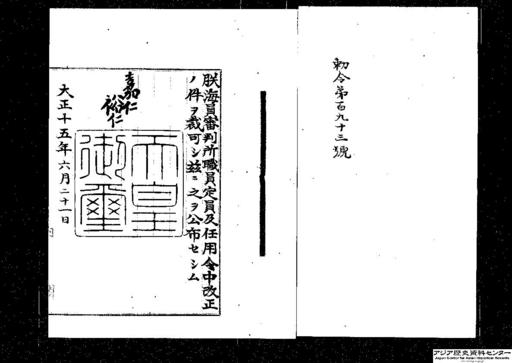 勅令第百九十三號
朕海員審判所職員定員及任用令中改正
ノ件ヲ裁可シ茲ニ之ヲ公布セシム
嘉仁
裕仁
天皇
御璽
大正十五年六月二十一日
アジア歴史資料センター
Japan Center for Asian Historical Records